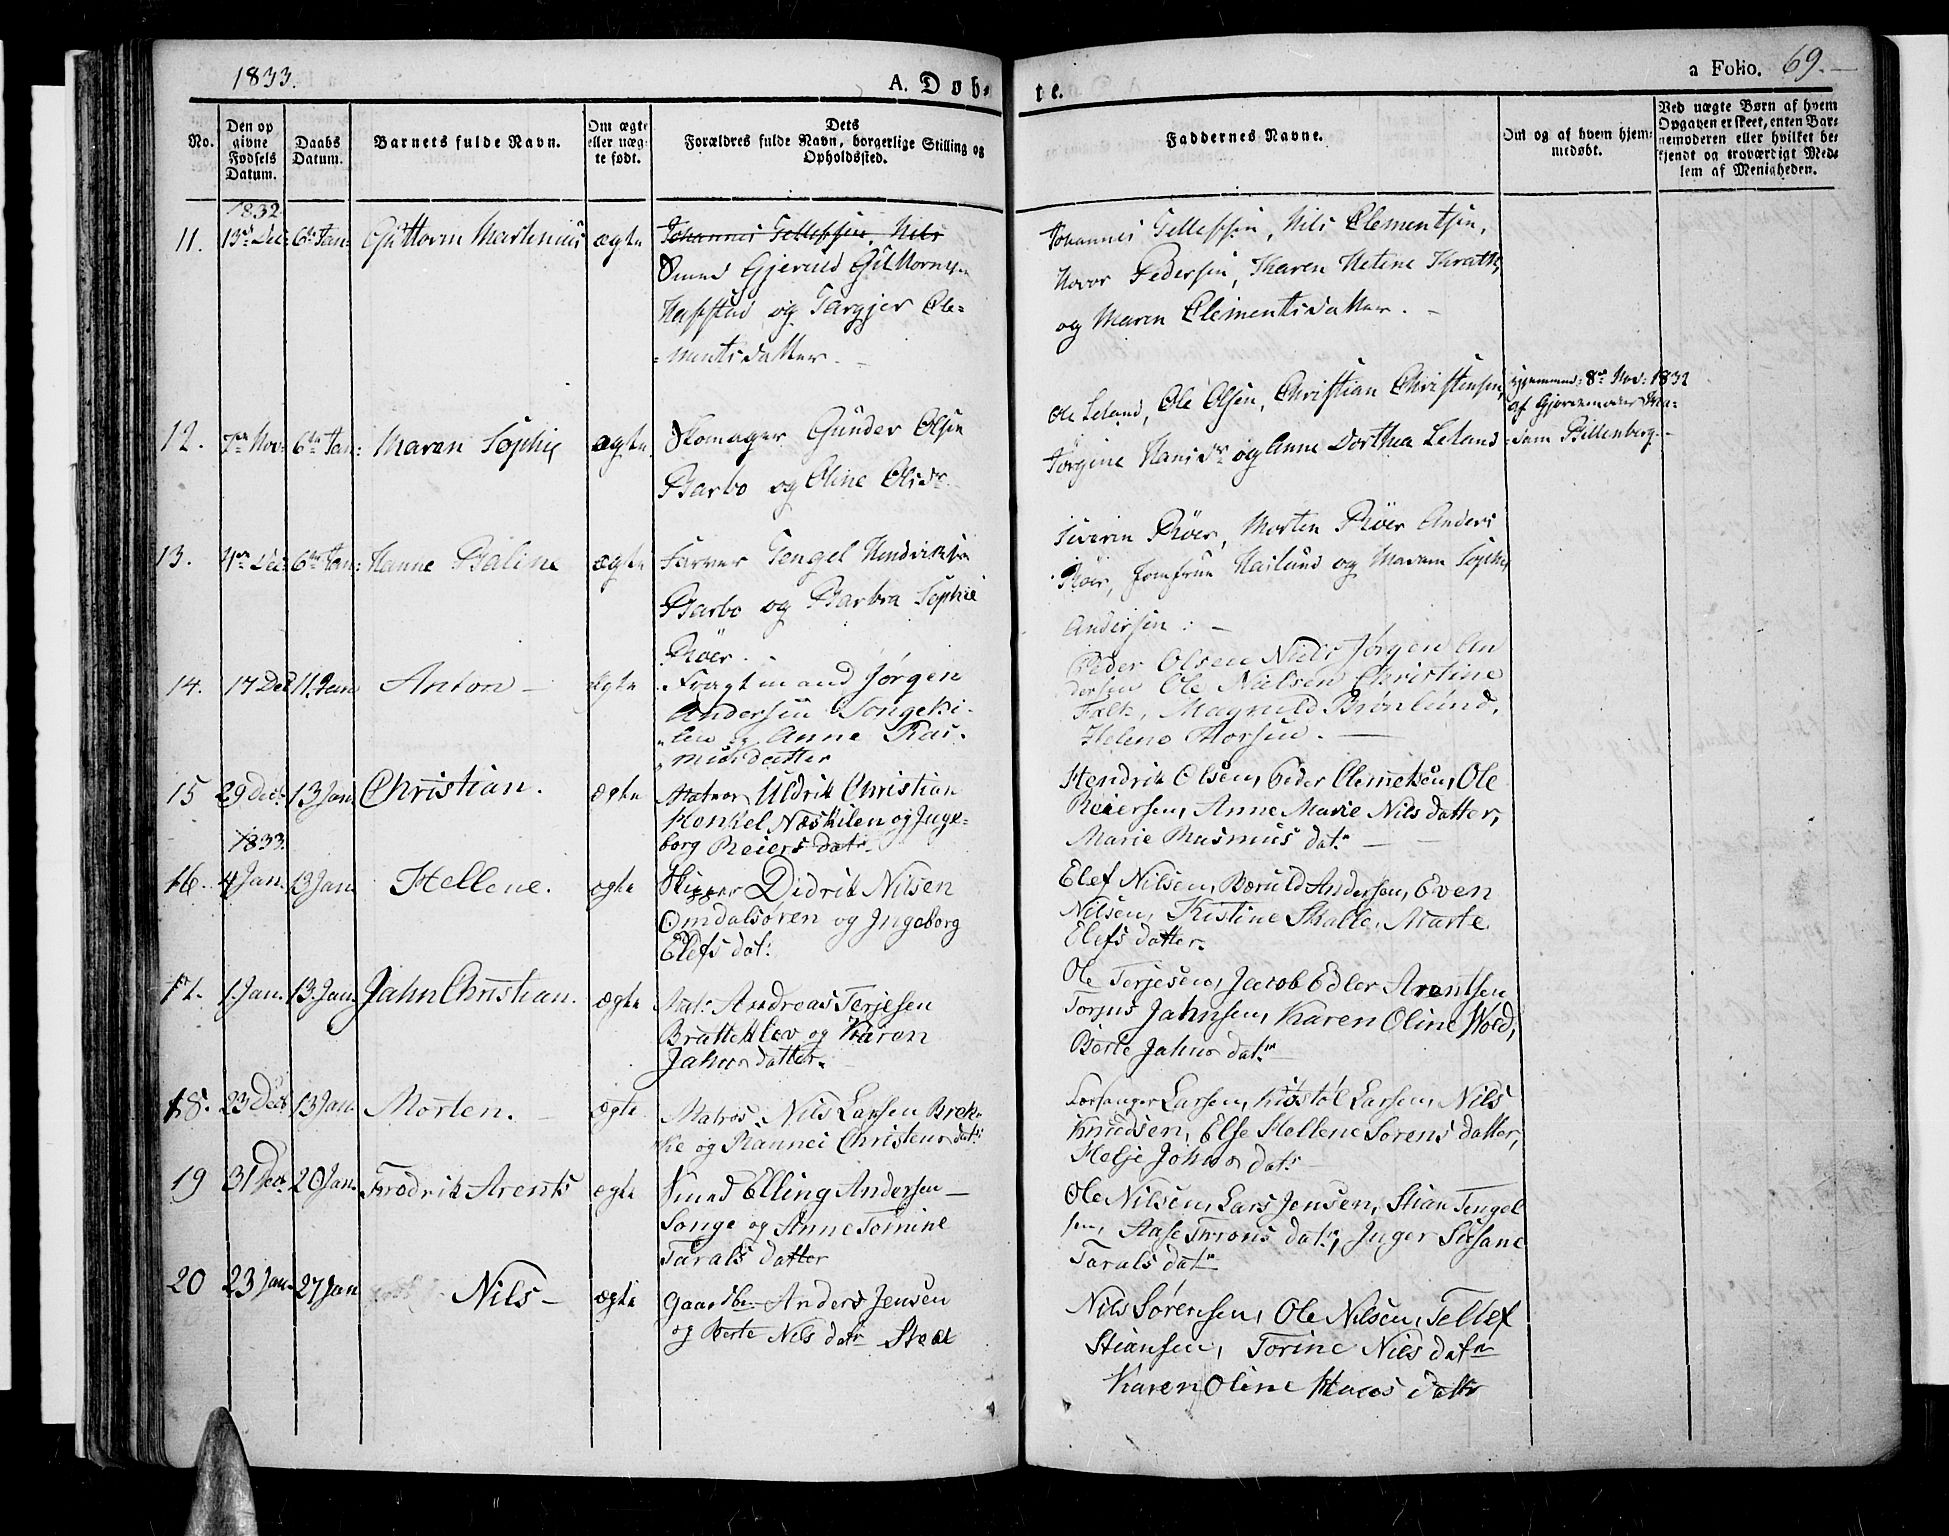 1833.
A. Døb-
te.
a Folio. 69.
No.
Den op
givne
Fødsels
Datum.
Daabs
Datum.
Barnets fulde Navn.
Om ægte
eller uæg-
te født.
Dets
Forældres fulde Navn, borgerlige Stilling og
Opholdssted.
Faddernes Navne.
Om og af hvem hjem-
medøbt.
Ved uægte Børn af hvem
Opgaven er skeet, enten Bar-
nemoderen eller hvilket be-
kjendt og troværdigt Med-
lem af Menigheden.
1832
11. 13de Dec: 6te Jan: Guttorm Martinius ægte Johannes Tellefsen, Nils
Smed Gjeruld Guttormsen
Hafstad og Targjer Cle-
mentsdatter.
Johannes Tellefsen, Nils Clementsen,
Hover Pedersen, Karen Helene
og Maren Clementsdatter.
12. 7de Nov: 6te Jan: Maren Sophie ægte Skomager Gunder Olsen
Barbo og Oline Olsdr.
Ole Leland, Ole Olsen, Christian Christensen,
Jorgine Hansdr og Anne Dorthea Leland
hjemmed: 8de Nov: 1832
af Gjordemoder Ma-
dam Billenberg.
13. 4de Dec: 6te Jan: Hanne Baline ægte Farver Tengel Hendriksen
Barbo og Barbra Sophie
Röer.
Severin Röer, Morten Röer Anders
Röer, Jomfrue Haslund og Madam Sophie
Andersen.
14. 17 Dec 11. Jan Anton ægte Fragtmand Jørgen
Andersen Songeki-
len og Anne Ras-
musdatter
Peder Olsen Niels Jørgen An
dersen Ole Nielsen Christine
Falk, Magnild Brønlund,
Helene Thorsen.
15 29 Decb. 13 Jan. Christian. ægte Matros Uldrik Christian
Henkel Næskilen og Inge-
borg Reiersdatr
Hendrik Olsen, Peder Clemetsen, Ole
Reiersen, Anne Marie Nilsdatter,
Marie Rasmusdatr
1833.
16. 4 Jan. 13 Jan. Hellene. ægte Skipper Didrik Nilsen
Omdalsøren og Ingeborg
Elefsdat:
Elef Nilsen, Bæruld Andersen, Even
Nilsen, Kistine Skalle, Marte
Elefsdatter.
17. 1. Jan. 13. Jan. Jahn Christian. ægte Mat: Andreas Terjesen
Bratteklev og Karen
Jahnsdatter.
Ole Terjesen, Jacob Edler Arentsen
Torjus Jahnsen, Karen Oline Wold,
Berte Jahnsdatr
18. 23 Decb 13 Jan. Morten. ægte Matros Nils Larsen Brek-
ke og Rannei Christensdatr
Forsanger Larsen, Kistøl Larsen, Nils
Knudsen, Else Hellene Sorensdatter,
Helje Johnsdatr
19 31 Decb. 20 Jan. Fredrik Arents ægte Smed Elling Andersen
Songe og Anne Tomine
Taralsdatter
Ole Nilsen, Lars Jensen, Stian Tengel
sen, Aase Tronsdatr, Inger Susane
Taralsdatr
20 23 Jan. 27 Jan Nils ægte Gaardbr. Anders Jensen
og Berte Nilsdatr
Nils Sørensen, Ole Nilsen, Tellef
Stiansen, Torine Nilsdatr
Karen Oline datr